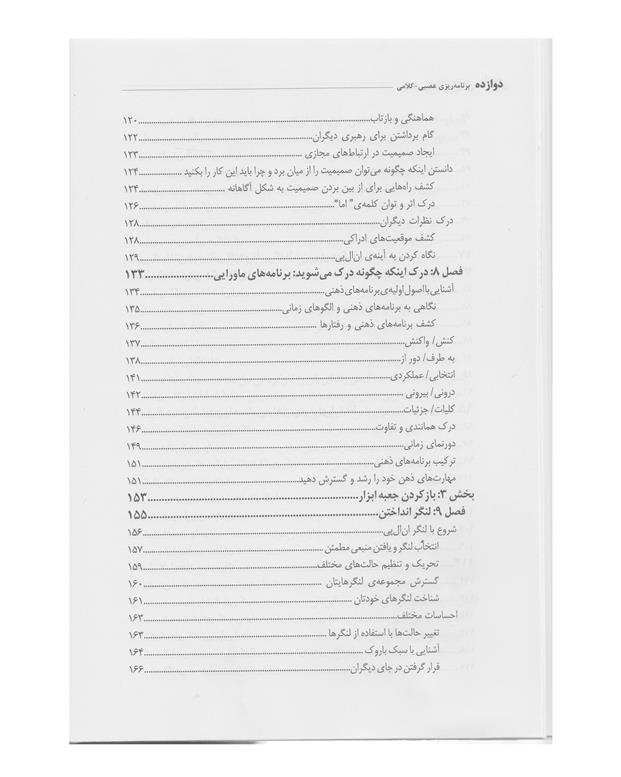 دوازده برنامه‌ریزی عصبی-کلامی
هماهنگی و بازتاب ۱۲۰
گام برداشتن برای رهبری دیگران ۱۲۲
ایجاد صمیمیت در ارتباط‌های مجازی ۱۲۳
دانستن اینکه چگونه می‌توان صمیمیت را از میان برد و چرا باید این کار را بکنید ۱۲۴
کشف راه‌هایی برای از بین بردن صمیمیت به شکل آگاهانه ۱۲۴
درک اثر و توان کلمه‌ی "اما" ۱۲۶
درک نظرات دیگران ۱۲۸
کشف موقعیت‌های ادراکی ۱۲۸
نگاه کردن به آینه‌ی ان‌ال‌پی ۱۲۹
فصل ۸: درک اینکه چگونه درک می‌شوید: برنامه‌های ماورایی ۱۳۳
آشنایی با اصول اولیه‌ی برنامه‌های ذهنی ۱۳۴
نگاهی به برنامه‌های ذهنی و الگوهای زمانی ۱۳۵
کشف برنامه‌های ذهنی و رفتارها ۱۳۶
کنش/ واکنش ۱۳۷
به طرف/ دور از ۱۳۸
انتخابی/ عملکردی ۱۴۱
درونی/ بیرونی ۱۴۲
کلیات/ جزئیات ۱۴۴
درک همانندی و تفاوت ۱۴۶
دورنمای زمانی ۱۴۹
ترکیب برنامه‌های ذهنی ۱۵۱
مهارت‌های ذهن خود را رشد و گسترش دهید ۱۵۱
بخش ۳: باز کردن جعبه ابزار ۱۵۳
فصل ۹: لنگر انداختن ۱۵۵
شروع با لنگر ان‌ال‌پی ۱۵۶
انتخاب لنگر و یافتن منبعی مطمئن ۱۵۷
تحریک و تنظیم حالت‌های مختلف ۱۵۹
گسترش مجموعه‌ی لنگرهایتان ۱۶۰
شناخت لنگرهای خودتان ۱۶۱
احساسات مختلف ۱۶۳
تغییر حالت‌ها با استفاده از لنگرها ۱۶۳
آشنایی با سبک باروک ۱۶۴
قرار گرفتن در جای دیگران ۱۶۶